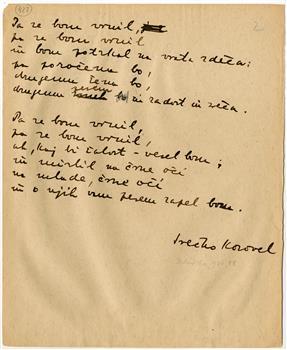 (427)
2
Pa se bom vrnil,
pa se bom vrnil
in bom potrkal na vrata zdeča:
pa poročena bo,
drugemu žena bo,
drugemu in radost in sreča.
Pa se bom vrnil,
pa se bom vrnil,
ah, kaj bi žalost - vesel bom;
in mislil na črne oči
na mlade, črne oči
in o njih vam pesem zapel bom.
Srečko Kosovel